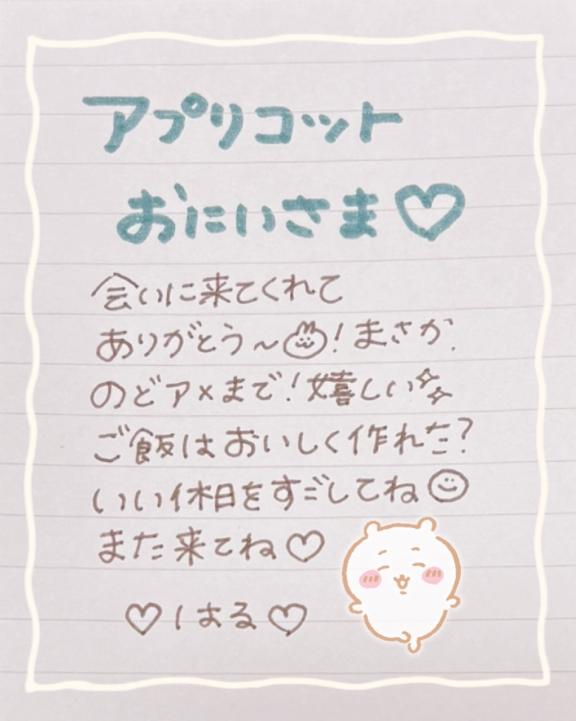 アプリコット
おにいさま♡
会いに来てくれて
ありがとう〜！まさか
のどアメまで！嬉しい
ご飯はおいしく作れた？
いい休日をすごしてね
また来てね♡
♡はる♡